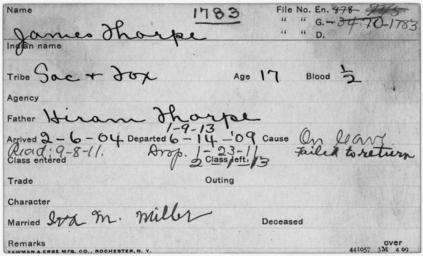 Name 1783 File No. En. 978
James Thorpe " " G. 34.70-1783
Indian name " " D.
Tribe Sac & Fox Age 17 Blood ½
Agency
Father Hiram Thorpe
1-9-13
Arrived 2-6-04 Departed 6-14-'09 Cause On leave
Read: 9-8-11. Drop. 1-'23-11 failed to return
Class entered Class left.
Trade Outing
Character
Married Iva M. Miller Deceased
Remarks over
YAWMAN & ERBE MFG. CO., ROCHESTER, N. Y. 441057 3M 4 09